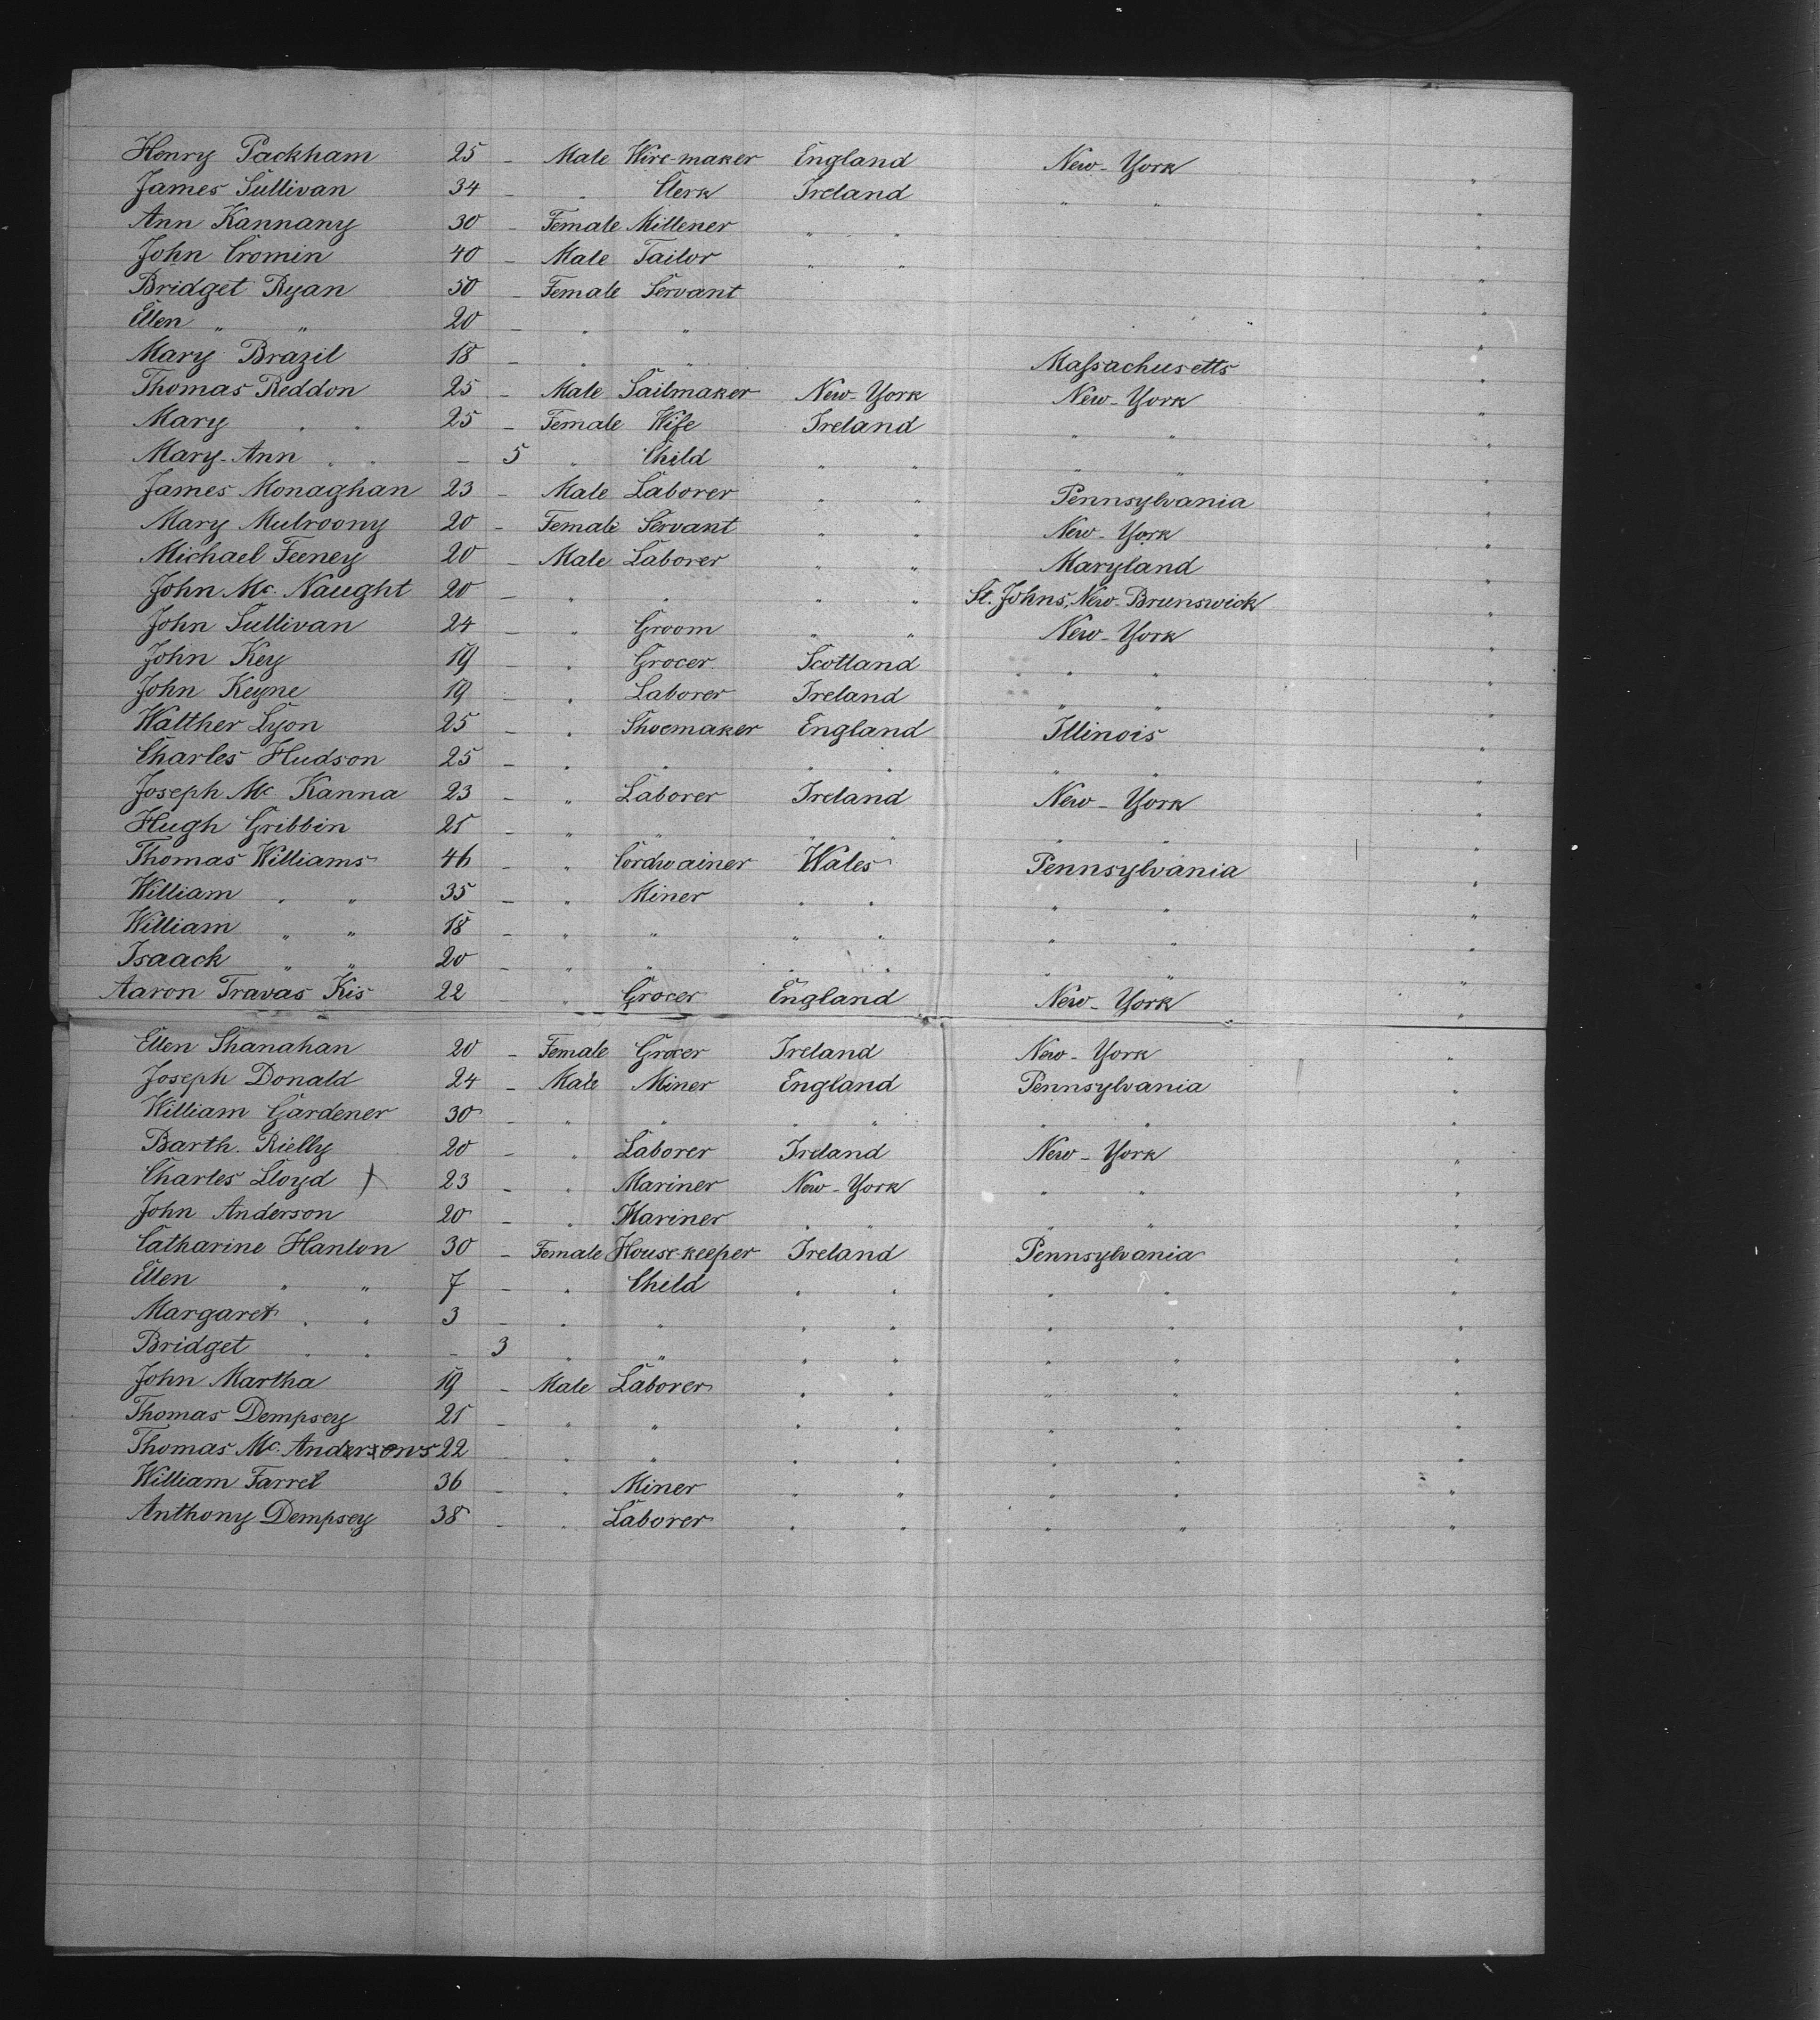 Henry Packham 25 - Male Wire-maker England New-York "
James Sullivan 34 - " Clerk Ireland " " "
Ann Kannany 30 - Female Millener " " "
John Cromin 40 - Male Tailor " "
Bridget Ryan 50 - Female Servant "
Ellen " " 20 - " " "
Mary Brazil 18 - " " Massachusetts "
Thomas Reddon 25 - Male Sailmaker New-York New-York "
Mary " " 25 - Female Wife Ireland " " "
Mary-Ann " " - 5 " Child " " " " "
James Monaghan 23 - Male Laborer " " Pennsylvania "
Mary Mulroony 20 - Female Servant " " New-York "
Michael Feeney 20 - Male Laborer " " Maryland "
John Mc. Naught 20 - " " " " St. Johns, New-Brunswick "
John Sullivan 24 - " Groom " " New-York "
John Key 19 - " Grocer Scotland " " "
John Keyne 19 - " Laborer Ireland " " "
Walther Lyon 25 - " Shoemaker England Illinois "
Charles Hudson 25 - " " " " " " "
Joseph Mc. Kanna 23 - " Laborer Ireland New-York "
Hugh Gribbin 21 - " " " " " " "
Thomas Williams 46 - " Cordwainer Wales Pennsylvania "
William " " 35 - " Miner " " " " "
William " " 18 - " " " " " " "
Isaack " " 20 - " " " " " " "
Aaron Travas Kis 22 - " Grocer England New-York "
Ellen Shanahan 20 - Female Grocer Ireland New-York "
Joseph Donald 24 - Male Miner England Pennsylvania "
William Gardener 30 - " " " " " " "
Barth. Rielly 20 - " Laborer Ireland New-York "
Charles Lloyd 23 - " Mariner New-York " " "
John Anderson 20 - " Mariner " " " " "
Catharine Hanlon 30 - Female House-keeper Ireland Pennsylvania "
Ellen " " 7 - " Child " " " " "
Margaret " " 3 - " " " " " " "
Bridget " " - 3 " " " " " " "
John Martha 19 - Male Laborer " " " " "
Thomas Dempsey 21 - " " " " " " "
Thomas Mc. Andersons 22 - " " " " " " "
William Farrel 36 - " Miner " " " " "
Anthony Dempsey 38 - " Laborer " " " " "